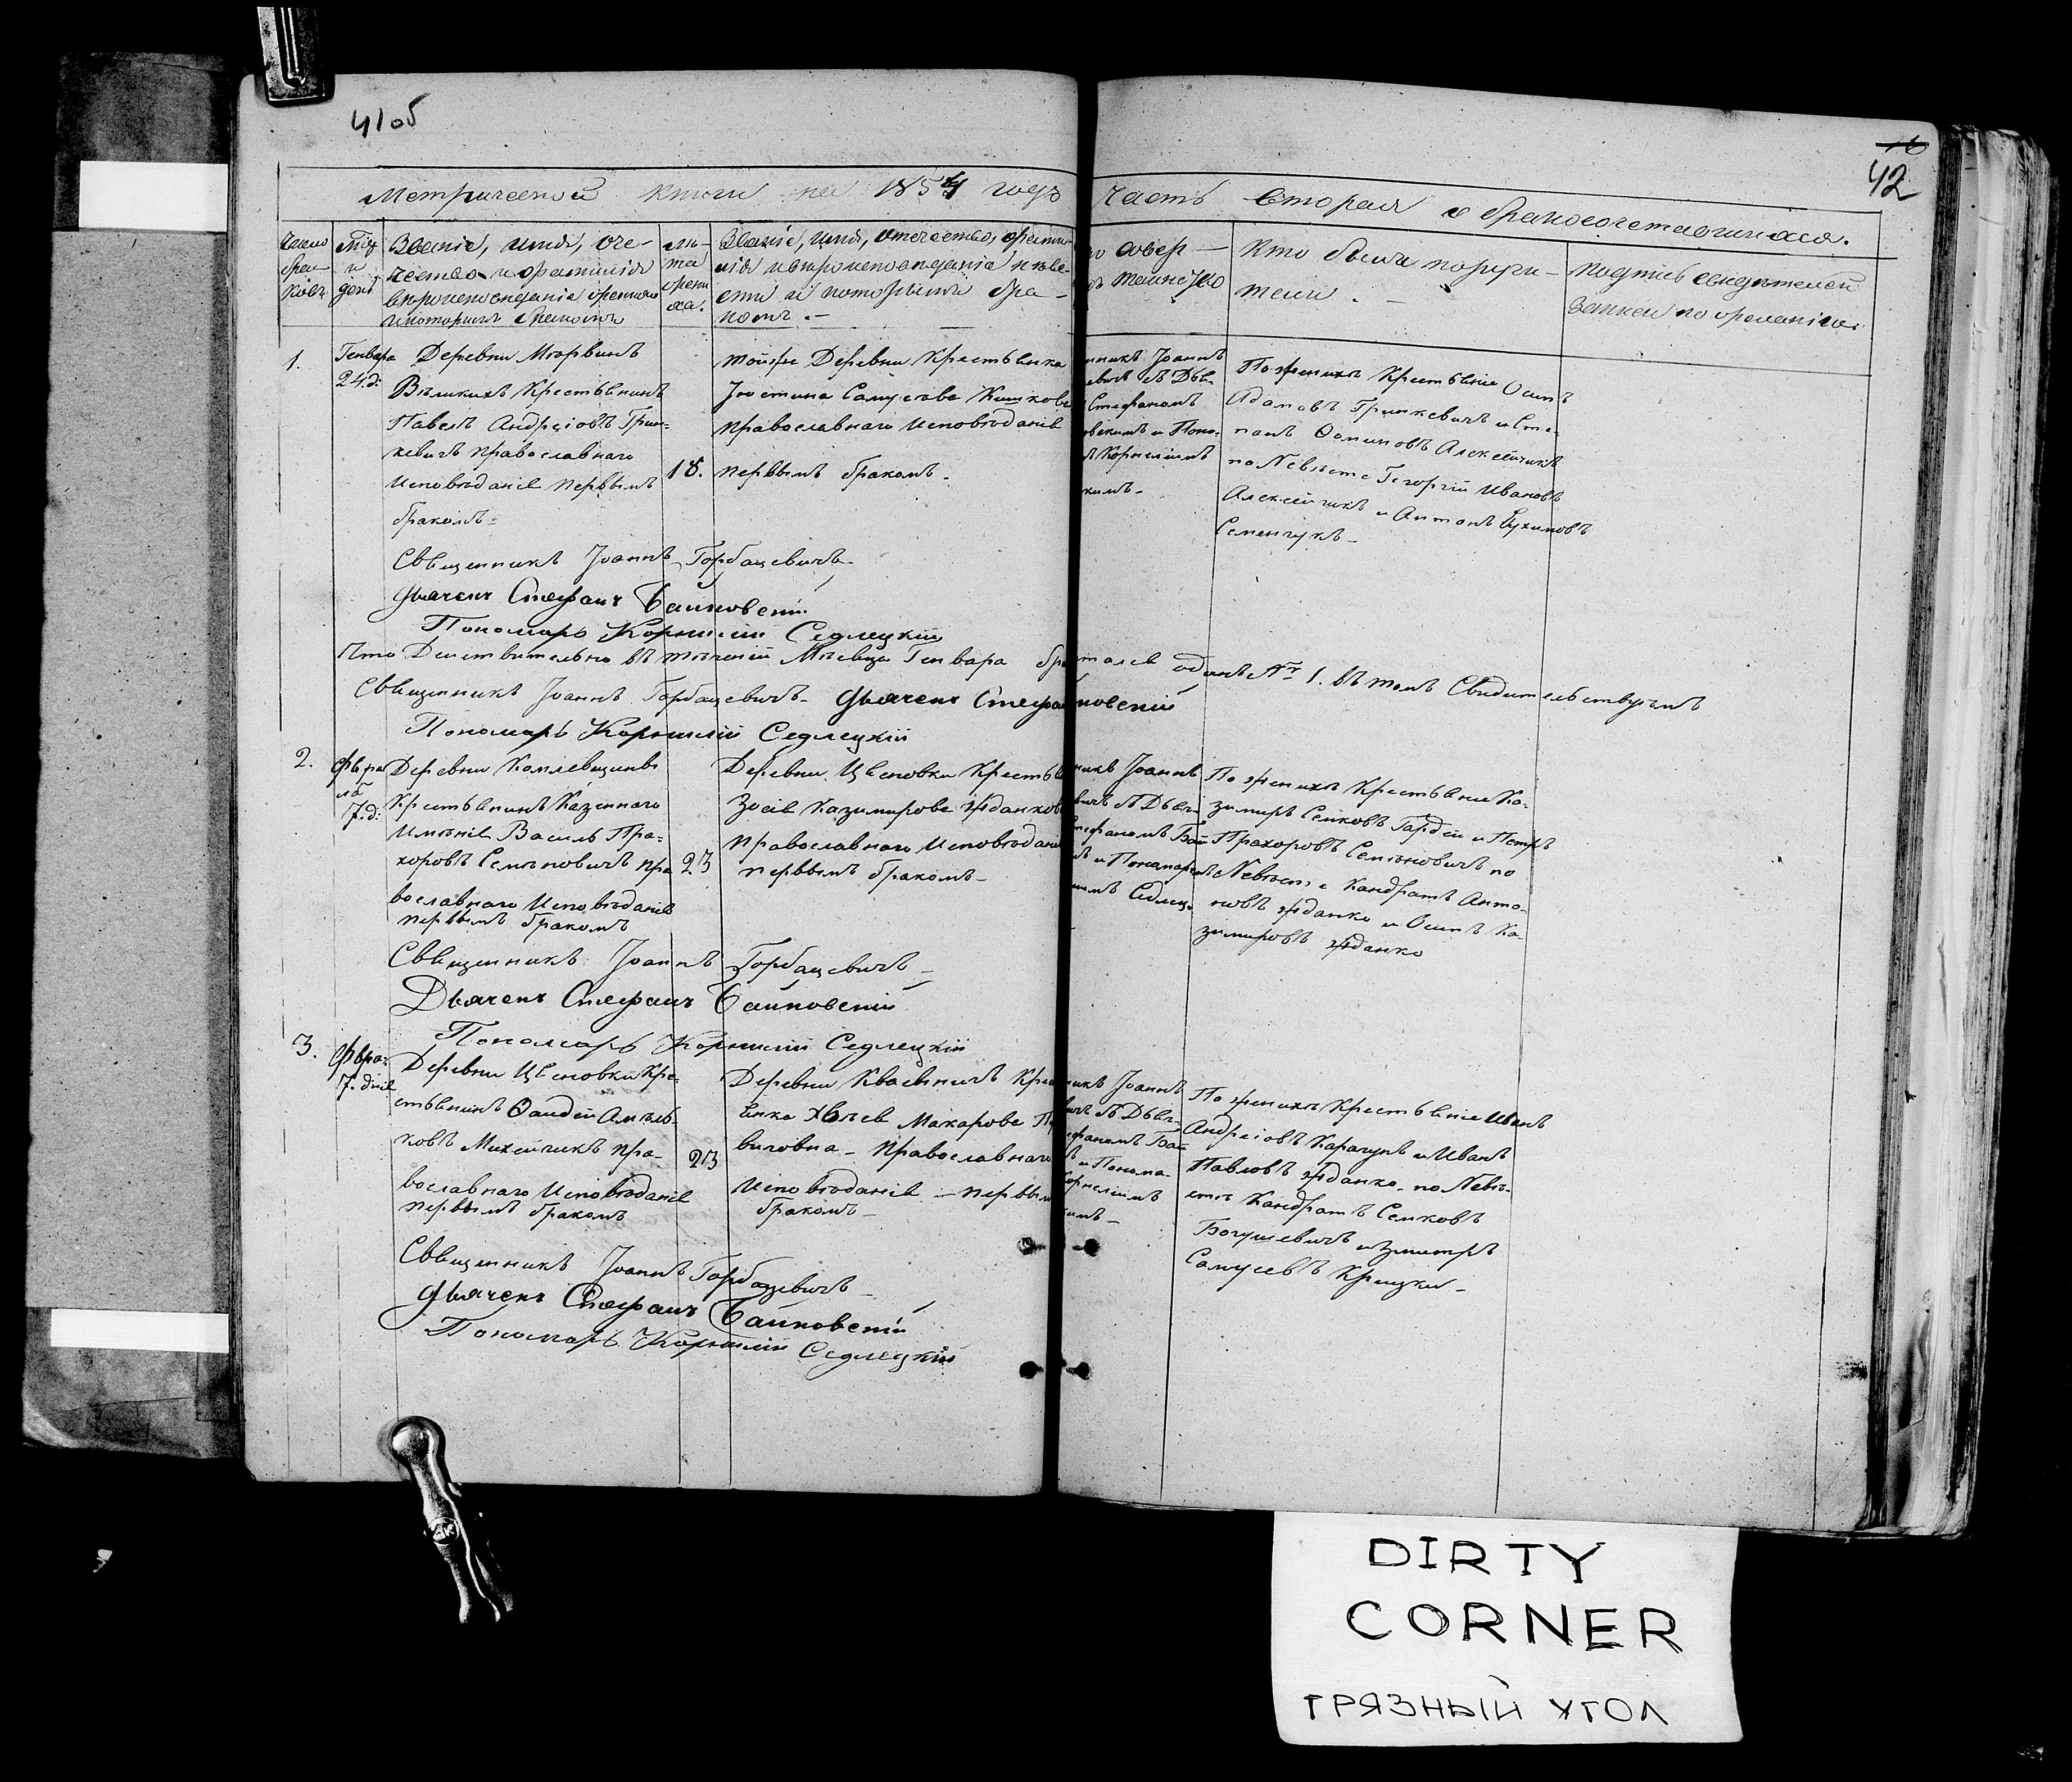 41об
42
Метрической книги на 1854 годъ
Часть вторая о бракосочетавшихся.
Число браковъ
Мѣс. и день
Званіе, имя, оте-
чество и фамилія
вѣроисповеданіе жениха
и которымъ бракомъ
лѣта жениха.
Званіе, имя, отечество, фамилія
и вѣроисповеданіе невѣ-
сты и которымъ бра-
комъ. –
о совер –
ъ таинство
Кто были поручи-
тели. –
Подпись свидѣтелей
записи по желанію.
1.
Генвара
24.д:
Деревни
Великихъ Крестьянинъ
Павелъ Андреіовъ Грин-
кевичъ православнаго
Исповѣданія первымъ
бракомъ-
18.
тойже Деревни Крестьянка
Іюстина Самусова
православнаго Исповѣданія
первымъ бракомъ –
нникъ Іоаннъ
евичъ съ Дья-
Стефаномъ
овскимъ и Поно-
Корниліимъ
кимъ-
По женихѣ Крестьяне Осипъ
Адамовъ Гринкевичъ и Сте-
панъ Ѳоминовъ Алексейчикъ
по Невѣсте Георгій Ивановъ
Алексейчикъ и Антонъ
Семенчукъ-
Священникъ Іоаннъ Горбацевичъ.
Дьячекъ Стефанъ Баиковскій
Пономарь Корнилій Седлецкій
Что Действительно въ теченіи Месяца Генвара
одинъ № 1. въ томъ Свидительствуемъ
Священникъ Іоаннъ Горбацевичъ – Дьячекъ
новскій
Пономарь Корнилій Седлецкій
2.
7.д:
Деревни
Крестьянинъ Казеннаго
Именія Василь Про-
хоровъ Семѣновичъ пра
вославнаго Исповѣданія
первымъ бракомъ
23
Деревни Цѣсновки
Зосія Казимирова Жданков
православнаго Исповѣдані
первымъ бракомъ –
никъ Іоаннъ
вичъ съ Дья-
тефаномъ Бай
ъ и Пономаремъ
Седлец.
По женихѣ Крестьяне Ка-
зимиръ Семковъ Гардей и Петръ
Прахоровъ Семѣновичъ по
Невѣсте Кандратъ Анто-
новъ Жданко и Осипъ Ка-
зимировъ Жданко
Священникъ Іоаннъ Горбацевичъ –
Дьячекъ Стефанъ Баиковскій
Пономарь Корнилій Седлецкій
3.
7. дня
Деревни Цѣсновки Кре-
стьянинъ Ѳаидей
ковъ Михейчикъ пра-
вославнаго Исповѣданія
первымъ бракомъ
23
Деревни
Макарова
виловна – православнаго
Исповѣданія – первым
бракомъ –
никъ Іоаннъ
вичъ съ Дьяч-
ефаномъ Бай
ъ и Понома-
Корниліимъ
кимъ –
По женихѣ Крестьяне Иванъ
Андреіовъ Карачунъ и Иванъ
Павловъ Жданко – по Невѣ-
сте Кандратъ Семковъ
Богушевичъ и
Самусевъ
Священникъ Іоаннъ Горбацевичъ –
Дьячекъ Стефанъ Баиковскій
Пономарь Корнилій Седлецкій
DIRTY
CORNER
ГРЯЗНЫЙ УГОЛ